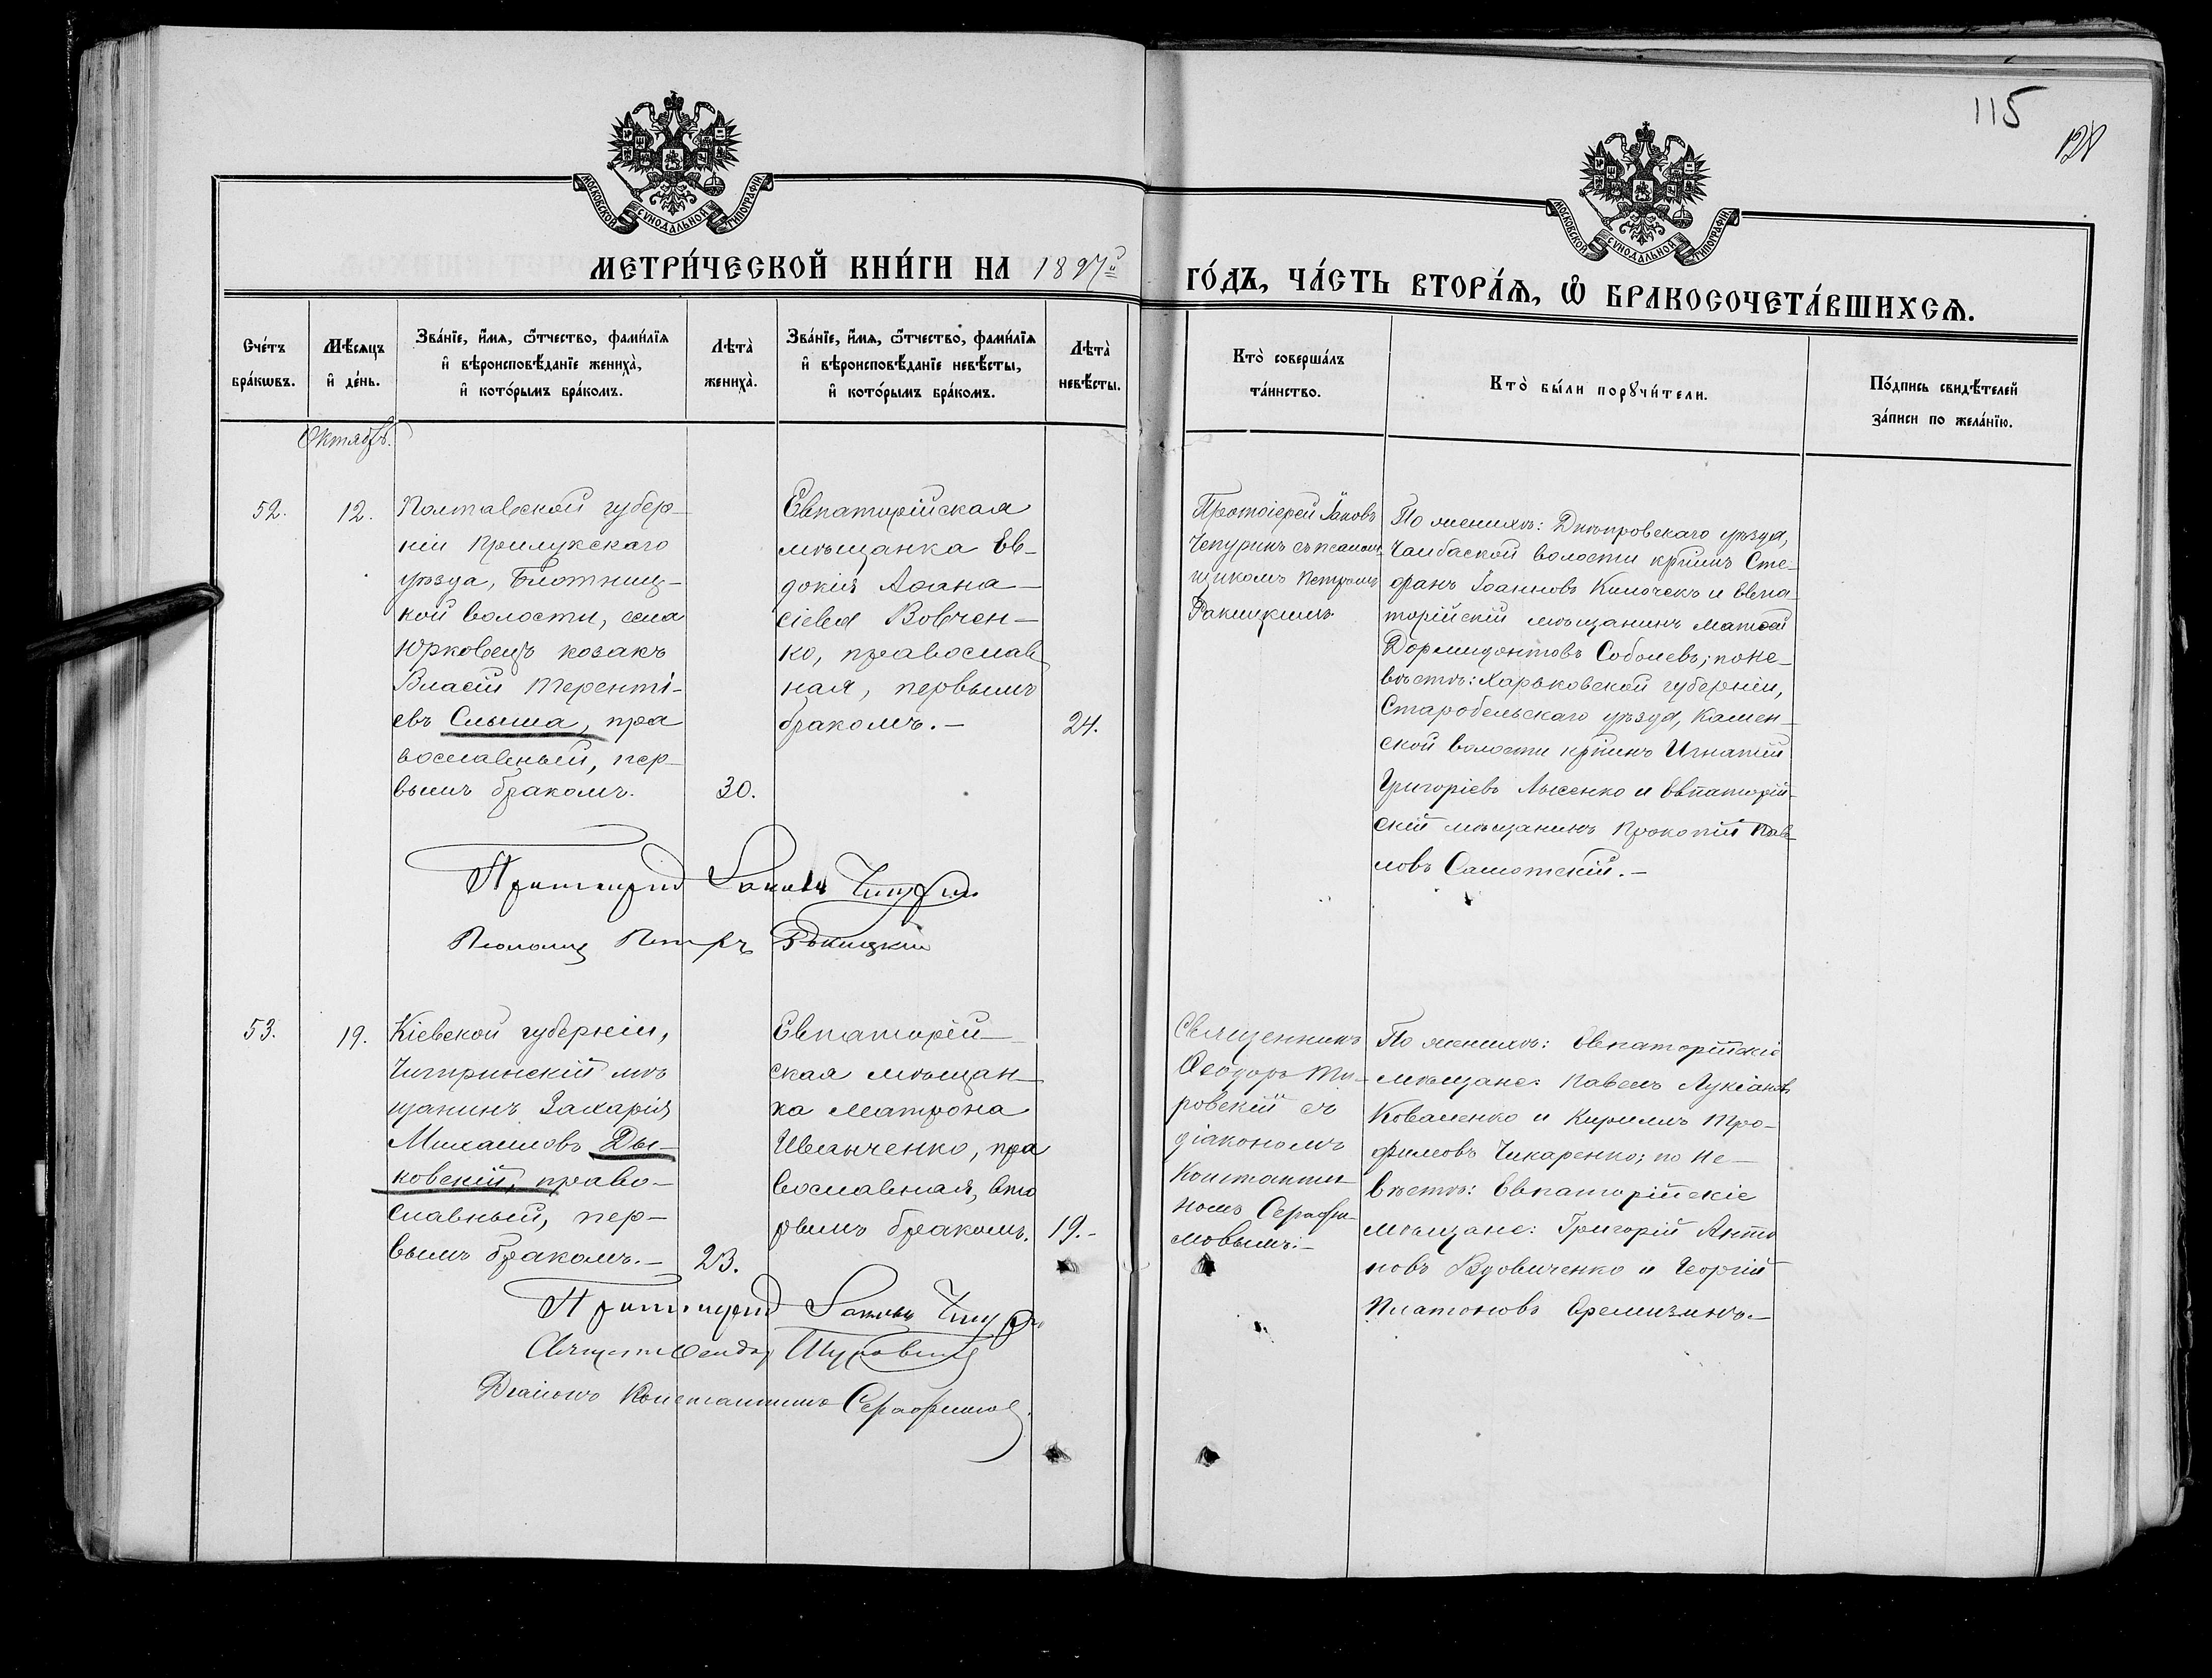 115
МОСКОВСКОЙ СУНОДАЛЬНОЙ ТИПОГРАФІИ
МОСКОВСКОЙ СУНОДАЛЬНОЙ ТИПОГРАФІИ
МЕТРИ́ЧЕСКОЙ КНИ́ГИ НА 1897й
ГО́ДЪ, ЧА́СТЬ ВТОРА́Ѧ, Ѽ БРАКОСОЧЕТА́ВШИХСѦ.
Сче́тъ
бра́кѡвъ.
Мѣ́сяцъ
и҆ де́нь.
Зва́нїе, и҆́мѧ, ѻ҆́тчество, фами́лїѧ
и҆ вѣроисповѣ́данїе жениха̀,
и҆ кото́рымъ бра́комъ.
Лѣта̀
жениха̀.
Зва́нїе, и҆́мѧ, ѻ҆́тчество, фами́лїѧ
и҆ вѣроисповѣ́данїе невѣ́сты,
и҆ кото́рымъ бра́комъ.
Лѣта̀
невѣ́сты.
Кто̀ соверша́лъ
та́инство.
Кто̀ бы́ли порꙋчи́тели.
По́дпись свидѣ́телей
за́писи по жела́нїю.
Октябрь.
52.
12.
Полтавской губер-
ніи Прилукскаго
уѣзда, Блотниц-
кой волости, села
Юрковецъ козакъ
Власій Теренті-
евъ Слыша, пра
вославный, пер-
вымъ бракомъ.
30.
Евпаторійская
мѣщанка Ев-
докія Аѳана-
сіева Вовчен-
ко, православ
ная, первымъ
бракомъ.-
24.
Протоіерей Іаковъ
Чепуринъ съ псалом-
щикомъ Петромъ
Ракицкимъ
По женихѣ: Днѣпровскаго уѣзда,
Чалбаской волости кр҃нинъ Сте-
фанъ Іоанновъ Килочекъ и Евпа-
торійскій мѣщанинъ Матѳей
Дормидонтовъ Соболевъ; по не-
вѣстѣ: Харьковской губерніи,
Старобельскаго уѣзда, Камен-
ской волости кр҃нинъ Игнатій
Григоріевъ Лысенко и Евпаторій-
скій мѣщанинъ Прокопій Пав-
ловъ Самотскій.-
Протоіерей Іаковъ Чепуринъ
Псаломщ Петръ Ракицкій
53.
19.
Кіевской губерніи,
Чигиринскій мѣ
щанинъ Захарія
Михаиловъ Ды-
ковскій, право-
славный, пер-
вымъ бракомъ.-
23.
Евпаторій-
ская мѣщан-
ка Матрона
Иванченко, пра
вославная, вто
рымъ бракомъ.
19.-
Священникъ
Ѳеодоръ Ти-
ровскій съ
діакономъ
Константи-
номъ Серафи-
мовымъ.-
По женихѣ: Евпаторійскіе
мѣщане: Павелъ Лукіановъ
Коваленко и Кириллъ Тро-
фимовъ Чикаренко; по не-
вѣстѣ: Евпаторійскіе
мѣщане: Григорій Анто
новъ Вдовиченко и Георгій
Платоновъ Еремизинъ.-
Протоіерей Іаковъ Чепуринъ
Священ Ѳеодор
Діаконъ Константинъ Серафимовъ.